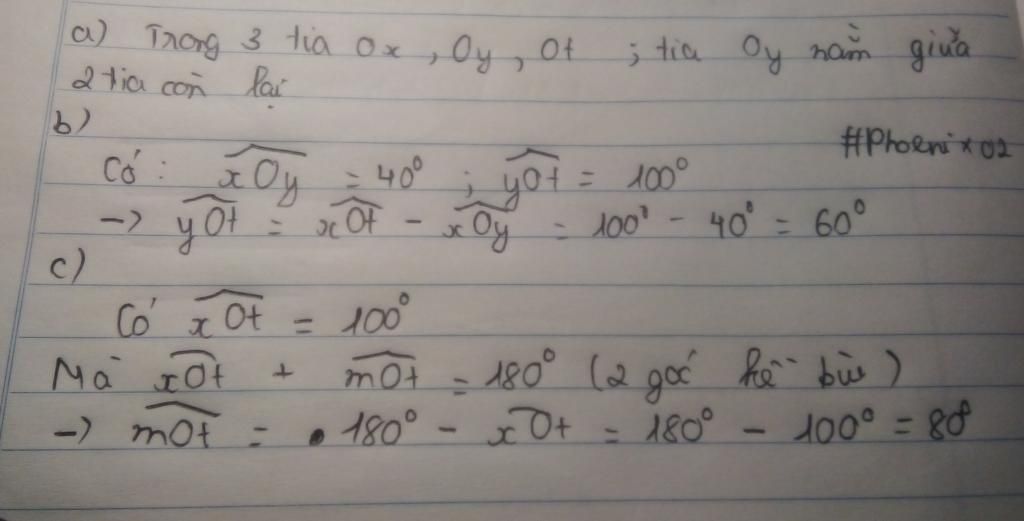 a) Trong 3 tia Ox, Oy, Ot ; tia Oy nằm giữa
2 tia còn lại
b)
#Phoenix02
Có: xOy = 40° ; yOt = 100°
-> yOt = xOt - xOy = 100° - 40° = 60°
c)
Có xOt = 100°
Mà xOt + mOt = 180° (2 góc kề bù)
-> mOt = 180° - xOt = 180° - 100° = 80°